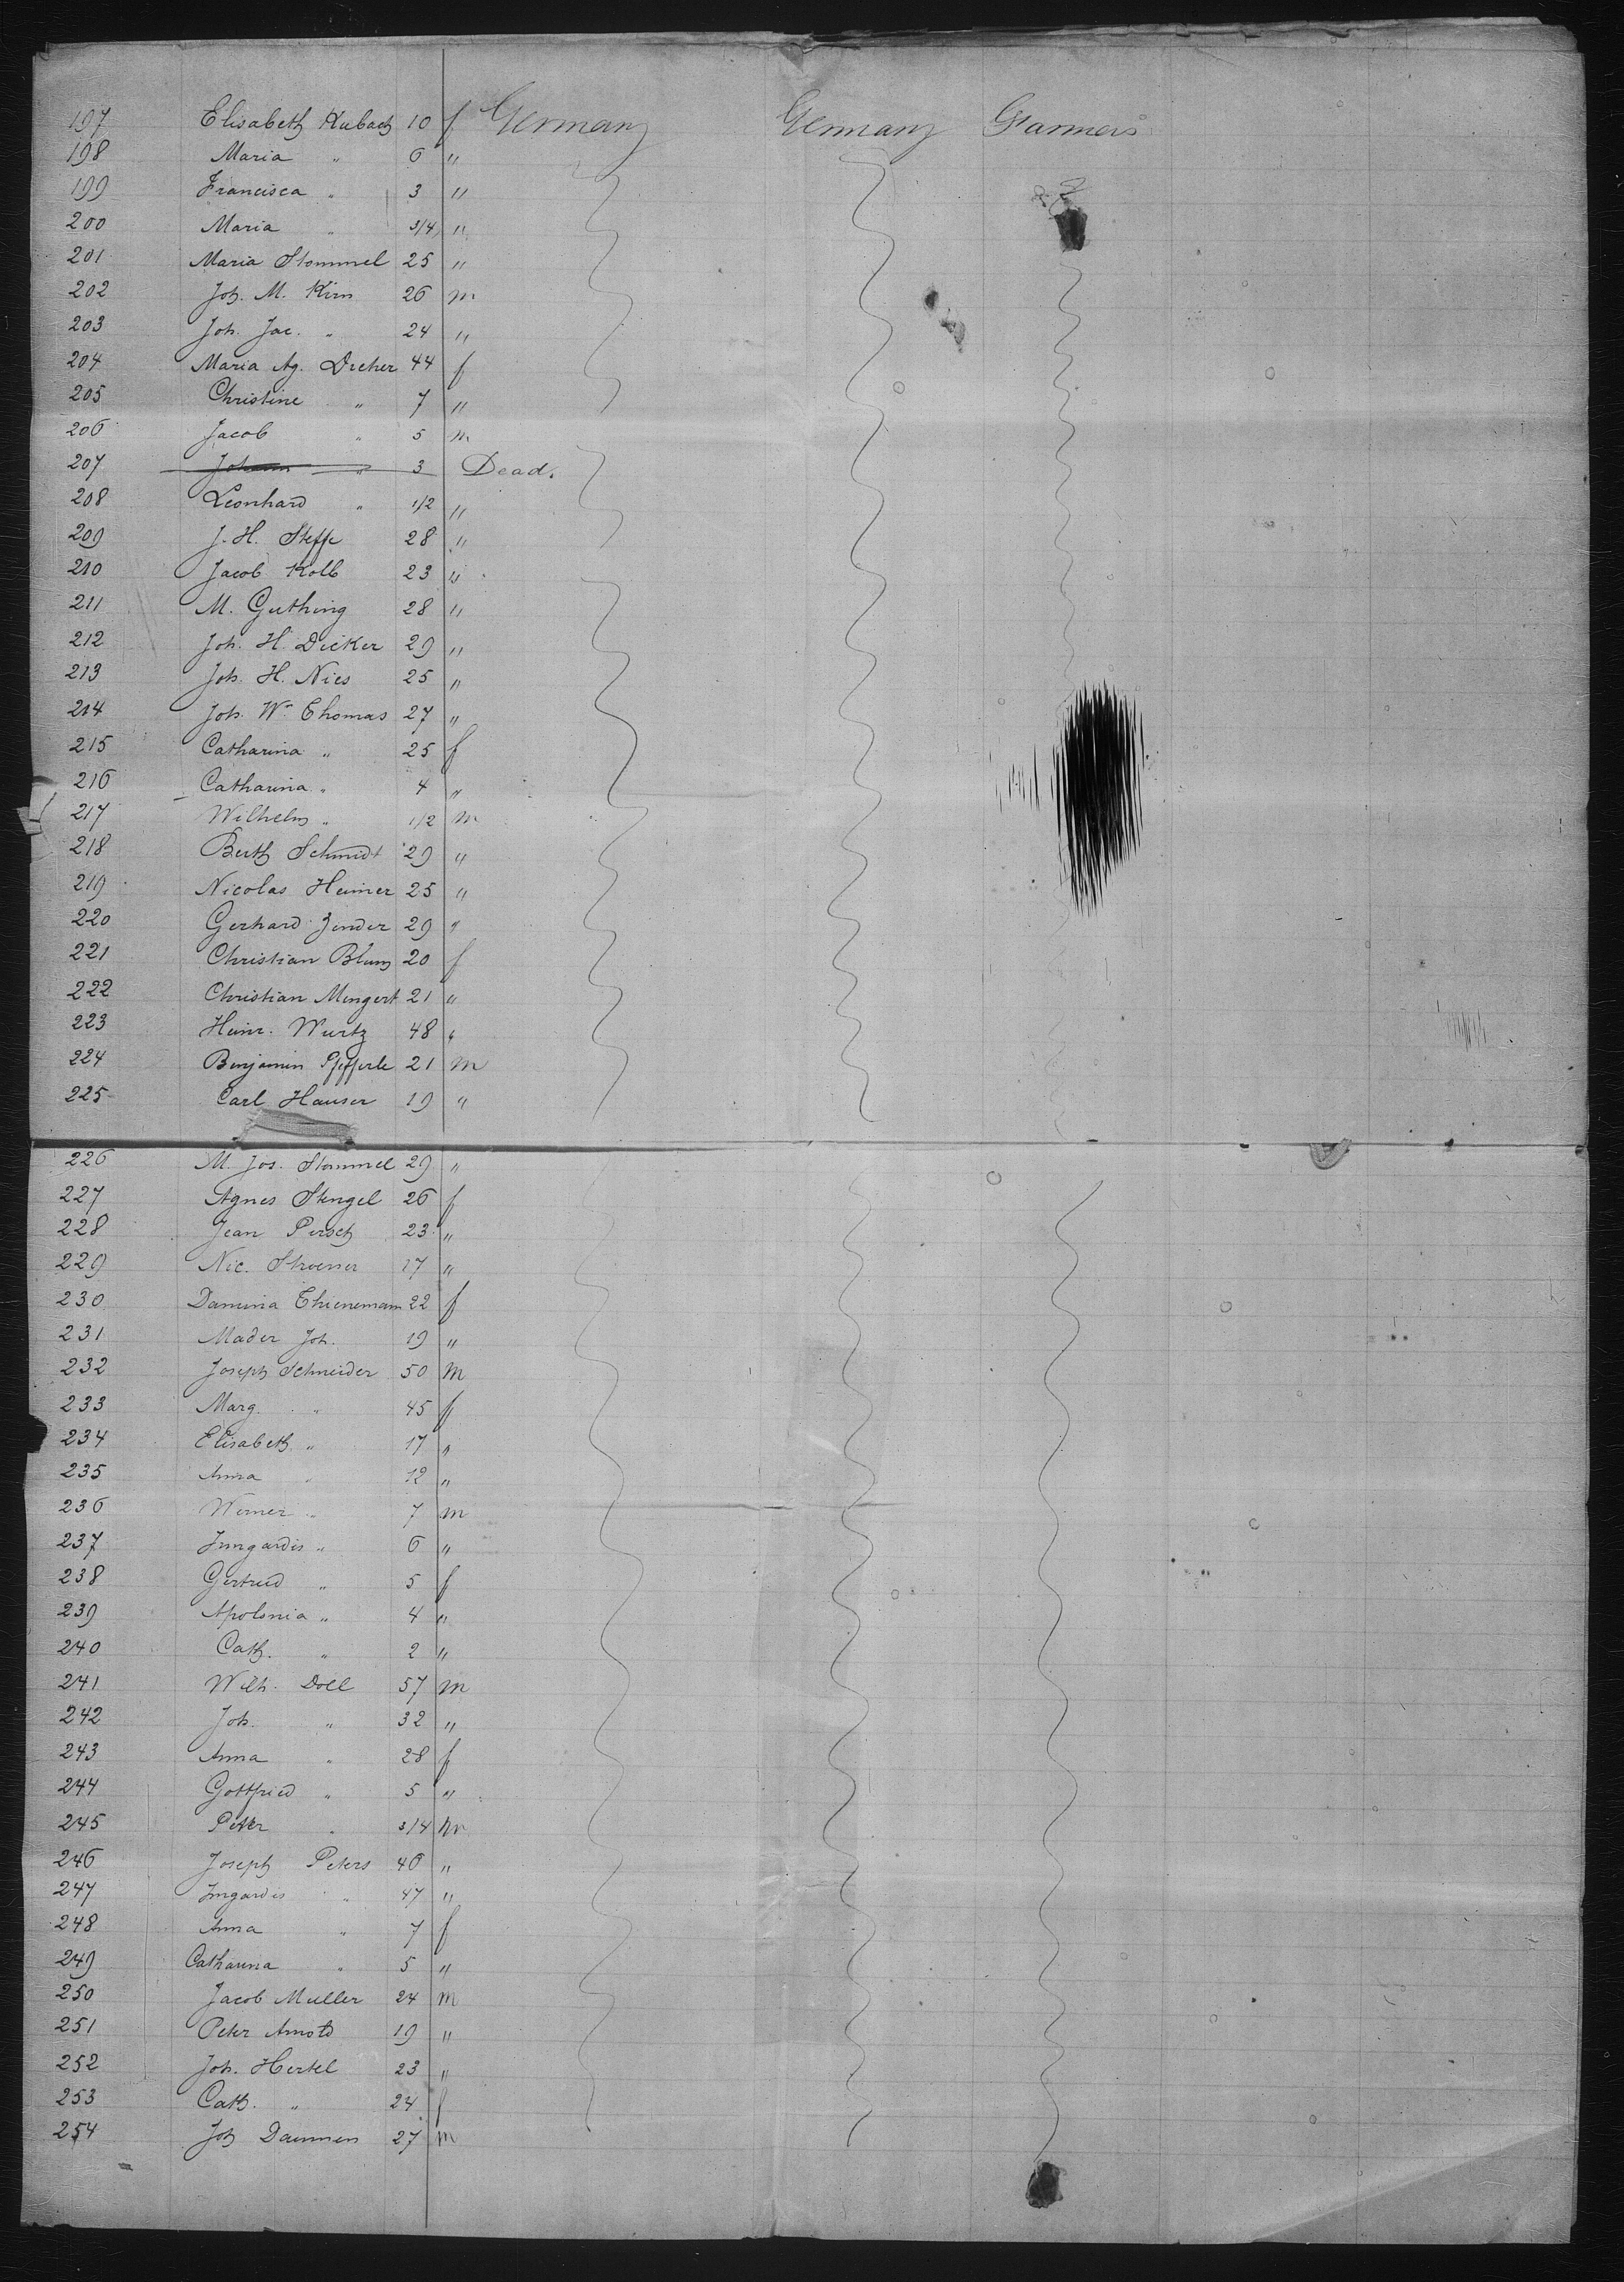 197 Elisabeth Kubach 10 f Germany Germany Farmers
198 Maria " 6 "
199 Francisca " 3 "
200 Maria " 3/4 "
201 Maria Stommel 25 "
202 Joh. M. Kirn 26 m
203 Joh. Jac. " 24 "
204 Maria Ag. Dreher 44 f
205 Christine " 7 "
206 Jacob " 5 m
207 Johann " 3 Dead.
208 Leonhard " 1/2 "
209 J. H. Steffe 28 "
210 Jacob Kolb 23 "
211 M. Guthing 28 "
212 Joh. H. Dicker 29 "
213 Joh. H. Nies 25 "
214 Joh. Wm Thomas 27 "
215 Catharina " 25 f
216 Catharina " 4 "
217 Wilhelm " 1/2 m
218 Berth Schmidt 29 "
219 Nicolas Heimer 25 "
220 Gerhard Zender 29 "
221 Christian Blum 20 f
222 Christian Mengert 21 "
223 Heinr. Wurtz 48 "
224 Benjamin Pfefferle 21 m
225 Carl Hauser 19 "
226 M. Jos. Stommel 29 "
227 Agnes Stengel 26 f
228 Jean Persch 23 "
229 Nic. 17 "
230 Thienemann 22 f
231 Mader Joh. 19 "
232 Joseph Schneider 50 m
233 Marg. " 45 f
234 Elisabeth " 17 "
235 Anna " 12 "
236 Werner " 7 m
237 Irmgardis " 6 "
238 Gertrud " 5 f
239 Apolonia " 4 "
240 Cath. " 2 "
241 Wilh. Doll 57 m
242 Joh. " 32 "
243 Anna " 28 f
244 Gottfried " 5 "
245 Peter " 3/4 m
246 Joseph Peters 46 "
247 Irmgardis " 47 "
248 Anna " 7 f
249 Catharina " 5 "
250 Jacob Muller 24 m
251 Peter Arnold 19 "
252 Joh. Hertel 23 "
253 Cath. " 24 f
254 Joh Daemmen 27 m